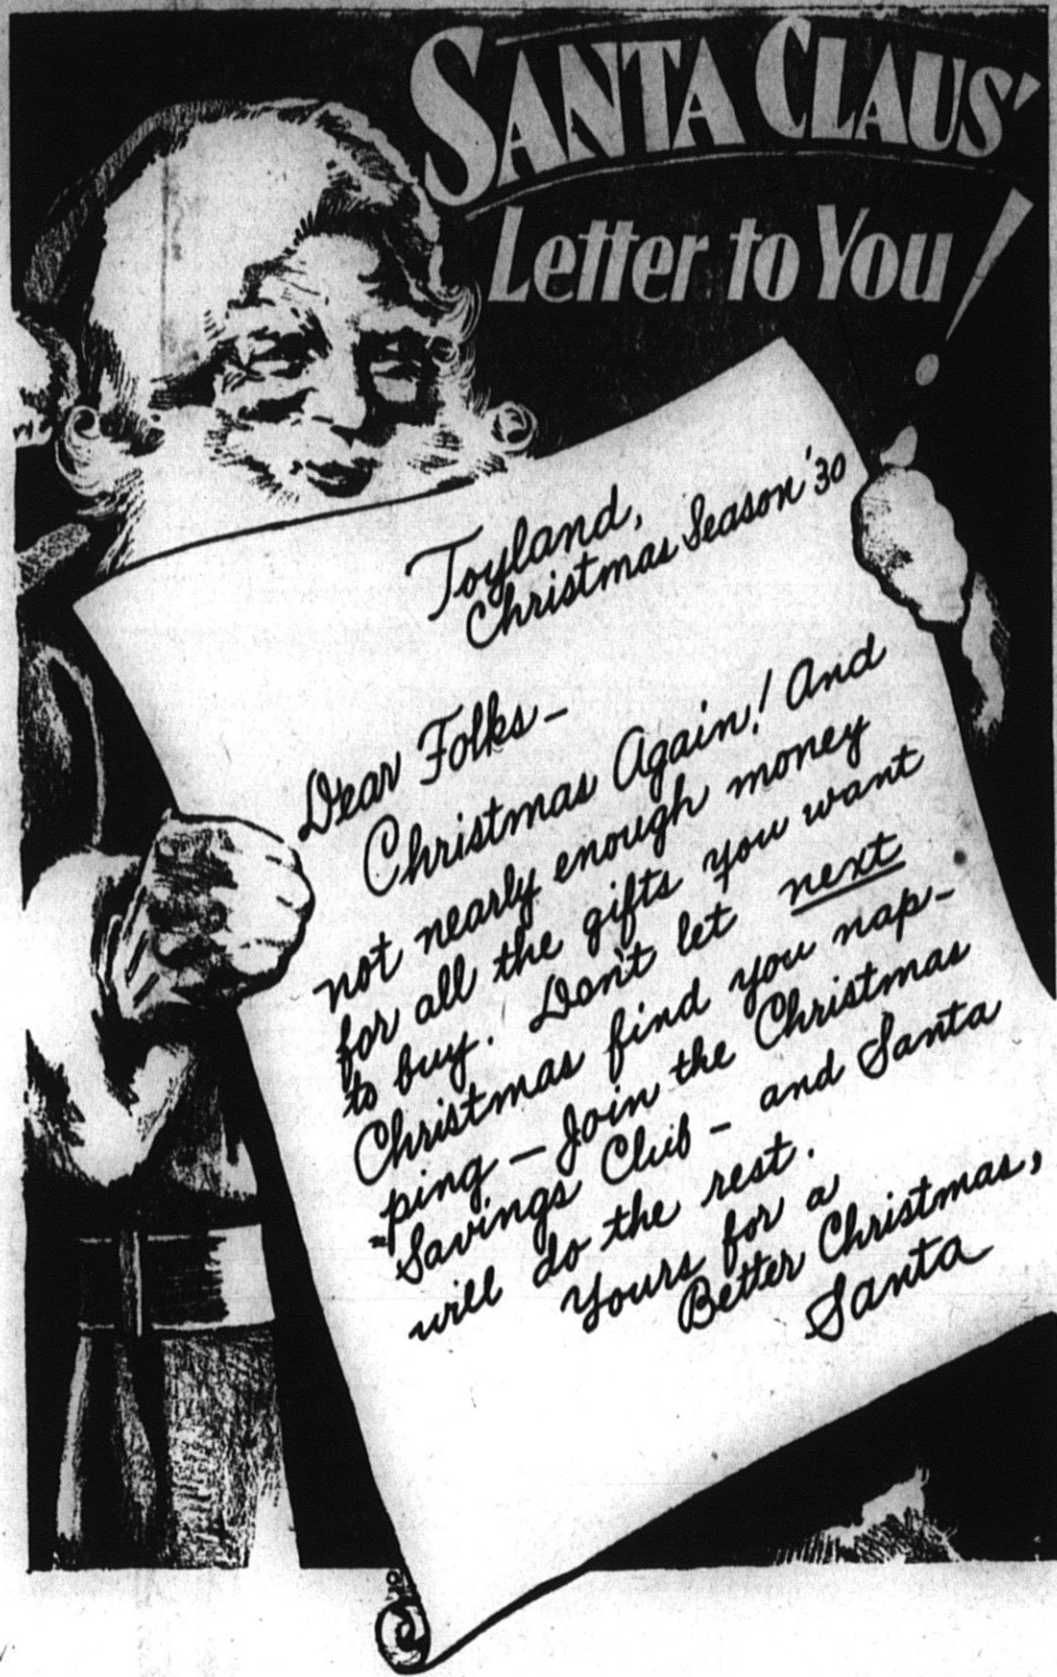 SANTA CLAUS'
Letter to You!
Toyland,
Christmas Season '30
Dear Folks—
Christmas Again! And
not nearly enough money
for all the gifts you want
to buy. Don't let next
Christmas find you nap-
ping — Join the Christmas
Savings Club — and Santa
will do the rest.
Yours for a
Better Christmas,
Santa
'30